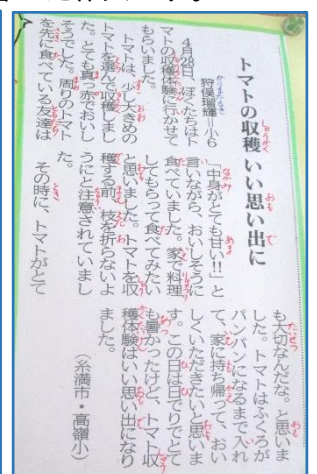 トマトの収穫いい思い出に
狩俣瑠輝=小6
4月28日、ぼくたちはト
マトの収穫体験に行かせて
もらいました。
トマトは、少し大きめの
トマトを選んで収穫しまし
た。とても真っ赤でおいし
そうでした。周りのトマト
を先に食べている友達は
「中身がとても甘い!!」と
言いながら、おいしそうに
食べていました。家で料理
してもらって食べてみたい
と思いました。トマトを収
穫する前、枝を折らないよ
うにと注意されていまし
た。
その時に、トマトがとて
も大切なんだな。と思いま
した。トマトはふくろが
パンパンになるまで入れ
て、家に持ち帰って、おい
しくいただきたいと思いま
す。この日は日でりでとて
も暑かったけど、トマト収
穫体験はいい思い出になり
ました。
(糸満市・高嶺小)